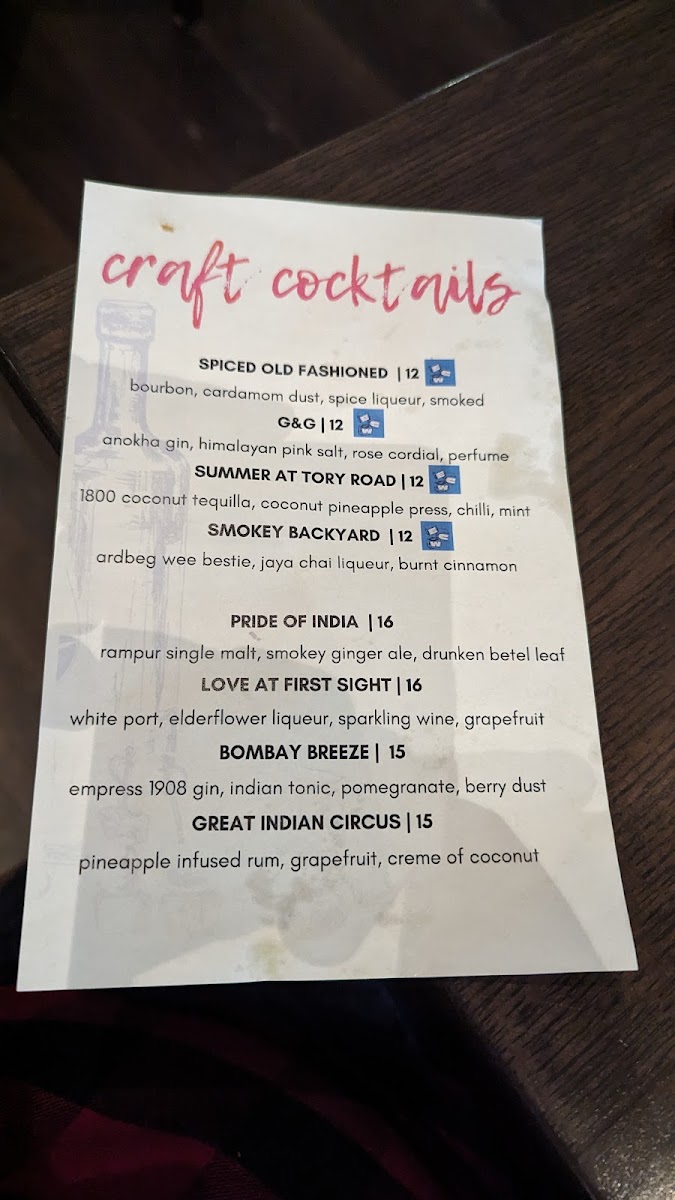 craft cocktails
SPICED OLD FASHIONED | 12
bourbon, cardamom dust, spice liqueur, smoked
G&G | 12
anokha gin, himalayan pink salt, rose cordial, perfume
SUMMER AT TORY ROAD | 12
1800 coconut tequilla, coconut pineapple press, chilli, mint
SMOKEY BACKYARD | 12
ardbeg wee bestie, jaya chai liqueur, burnt cinnamon
PRIDE OF INDIA | 16
rampur single malt, smokey ginger ale, drunken betel leaf
LOVE AT FIRST SIGHT | 16
white port, elderflower liqueur, sparkling wine, grapefruit
BOMBAY BREEZE | 15
empress 1908 gin, indian tonic, pomegranate, berry dust
GREAT INDIAN CIRCUS | 15
pineapple infused rum, grapefruit, creme of coconut